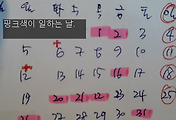 핑크색이 일하는 날.
1 2 3 4
5 6 7 8 9 10 11
12 13 14 15 16 17 18
19 20 21 22 23 24 25
26 27 28 29 30 31